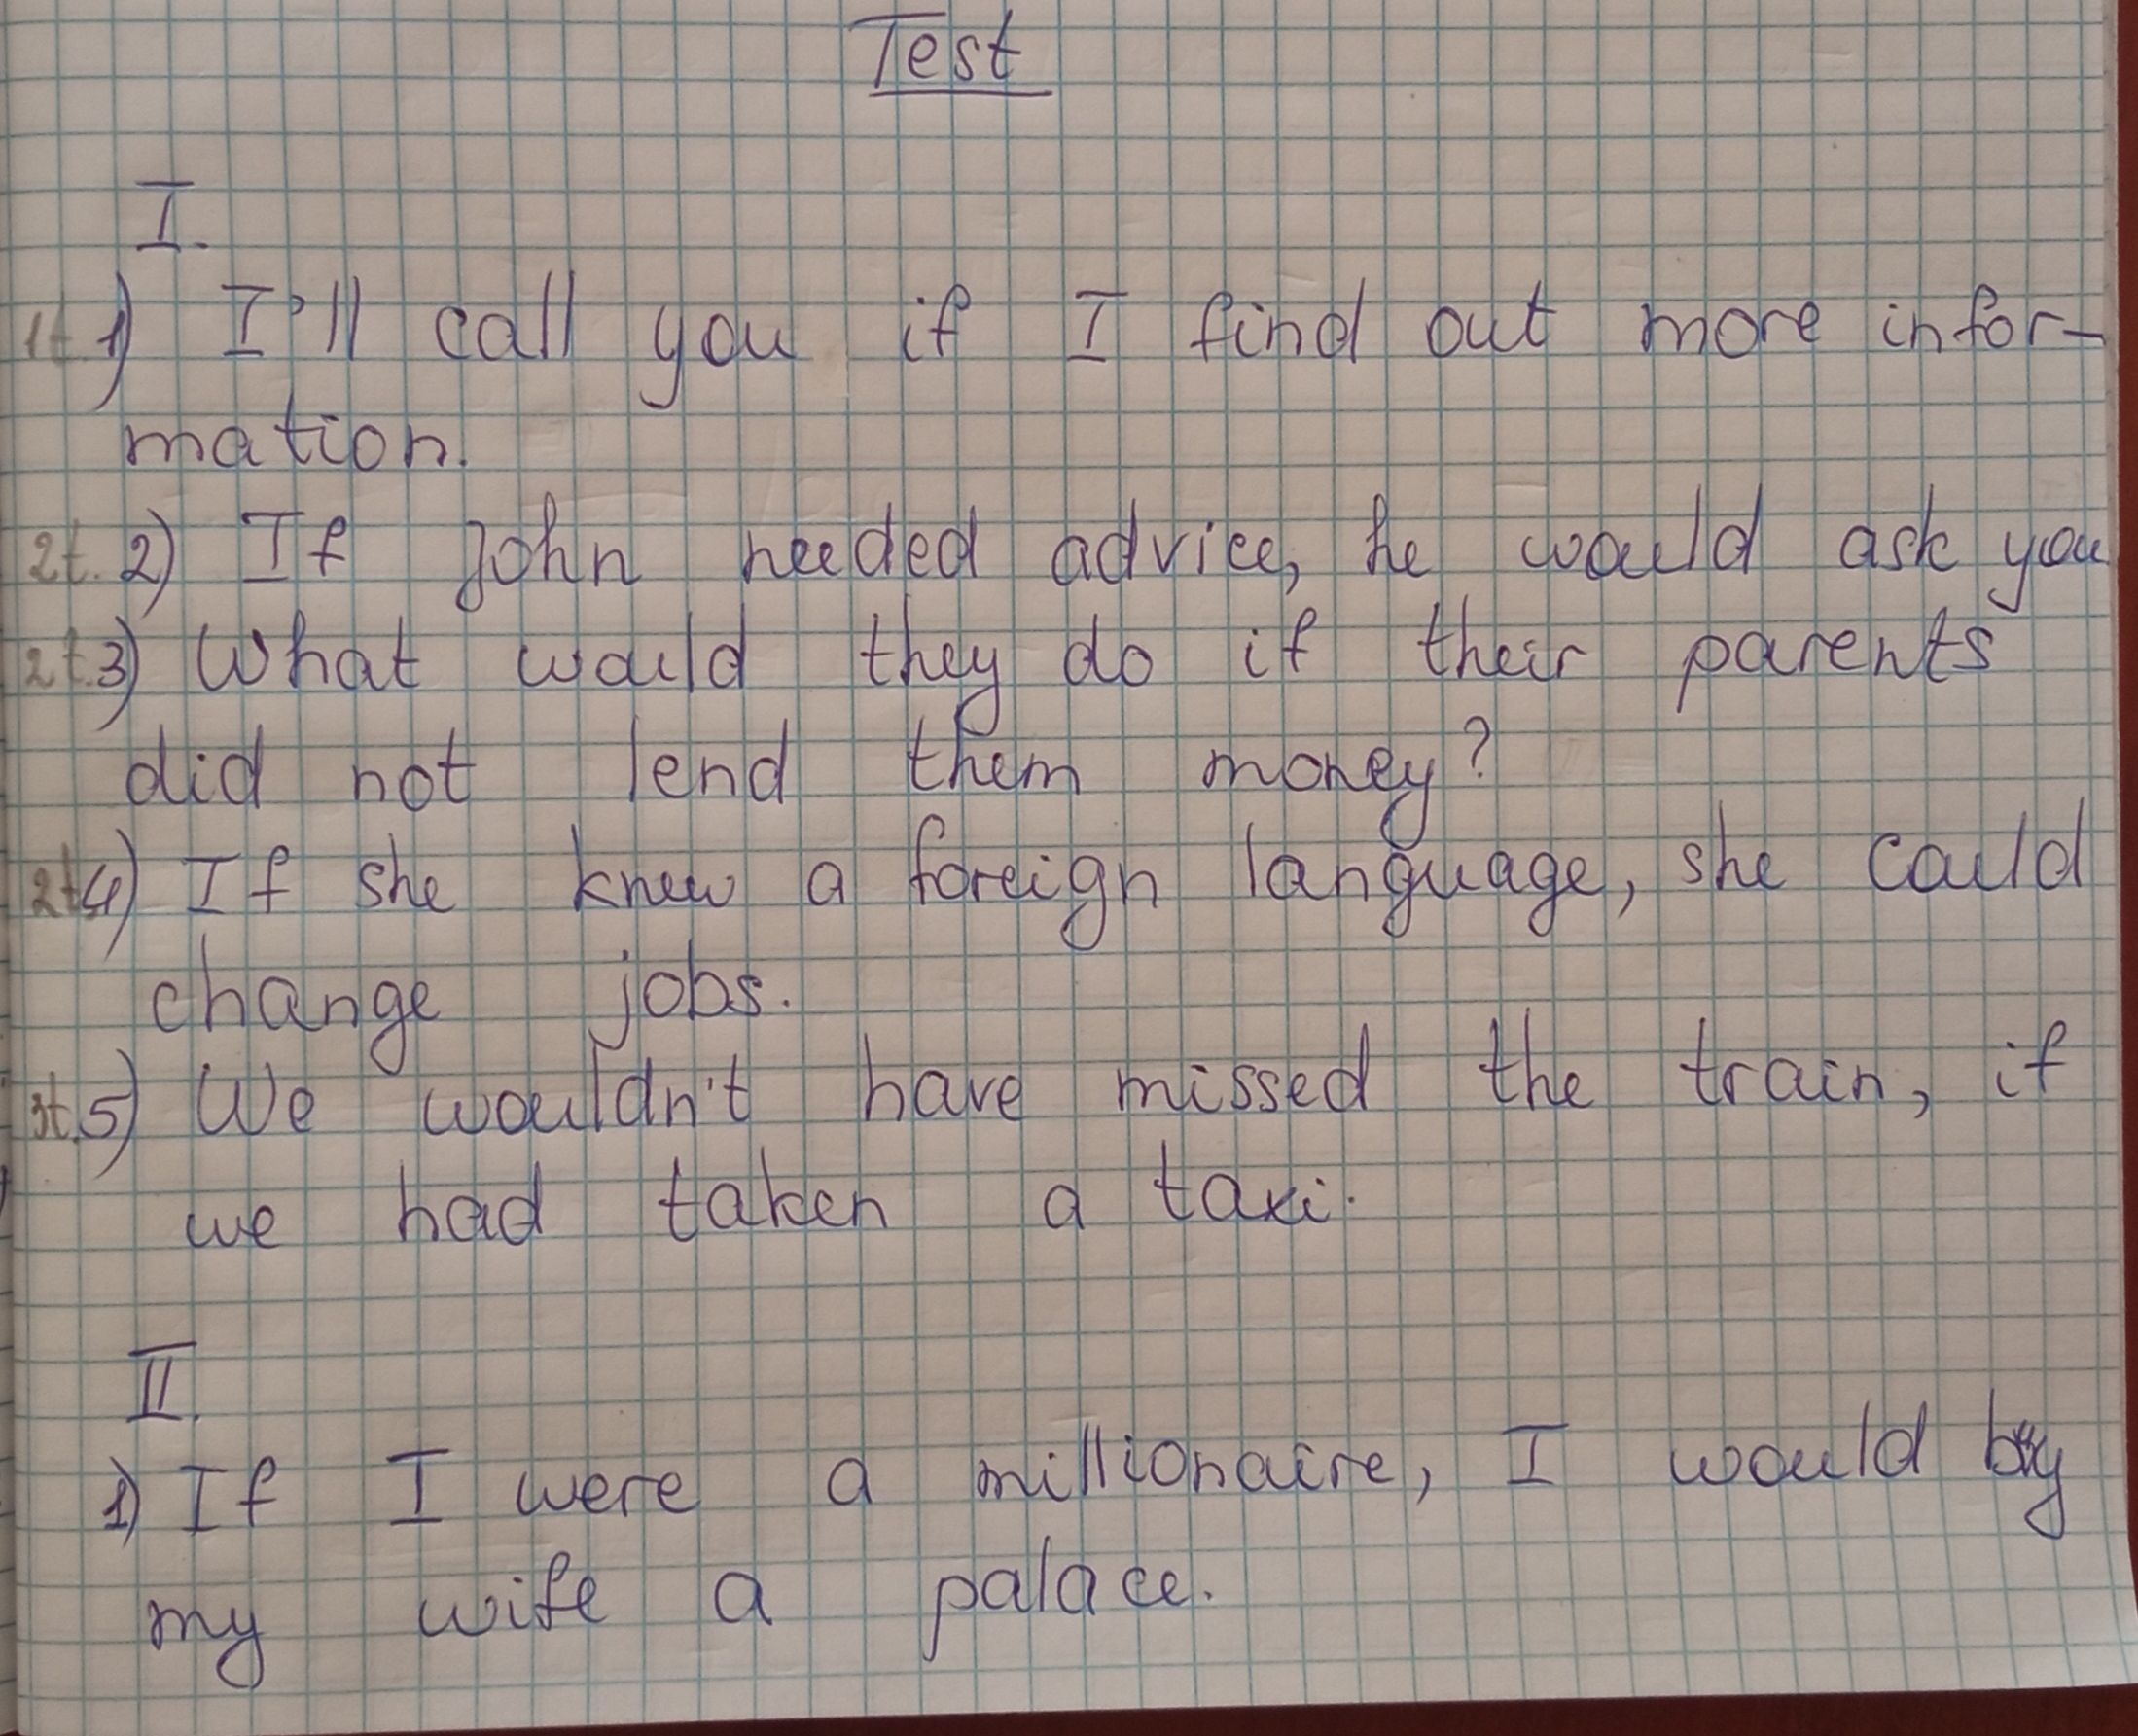 Test
I.
1t. 1) I'll call you if I find out more infor-
mation.
2t. 2) If John needed advice, he would ask you
2t. 3) What would they do if their parents
did not lend them money?
2t 4) If she knew a foreign language, she could
change jobs.
3t. 5) We wouldn't have missed the train, if
we had taken a taxi.
II.
1) If I were a millionaire, I would buy
my wife a palace.